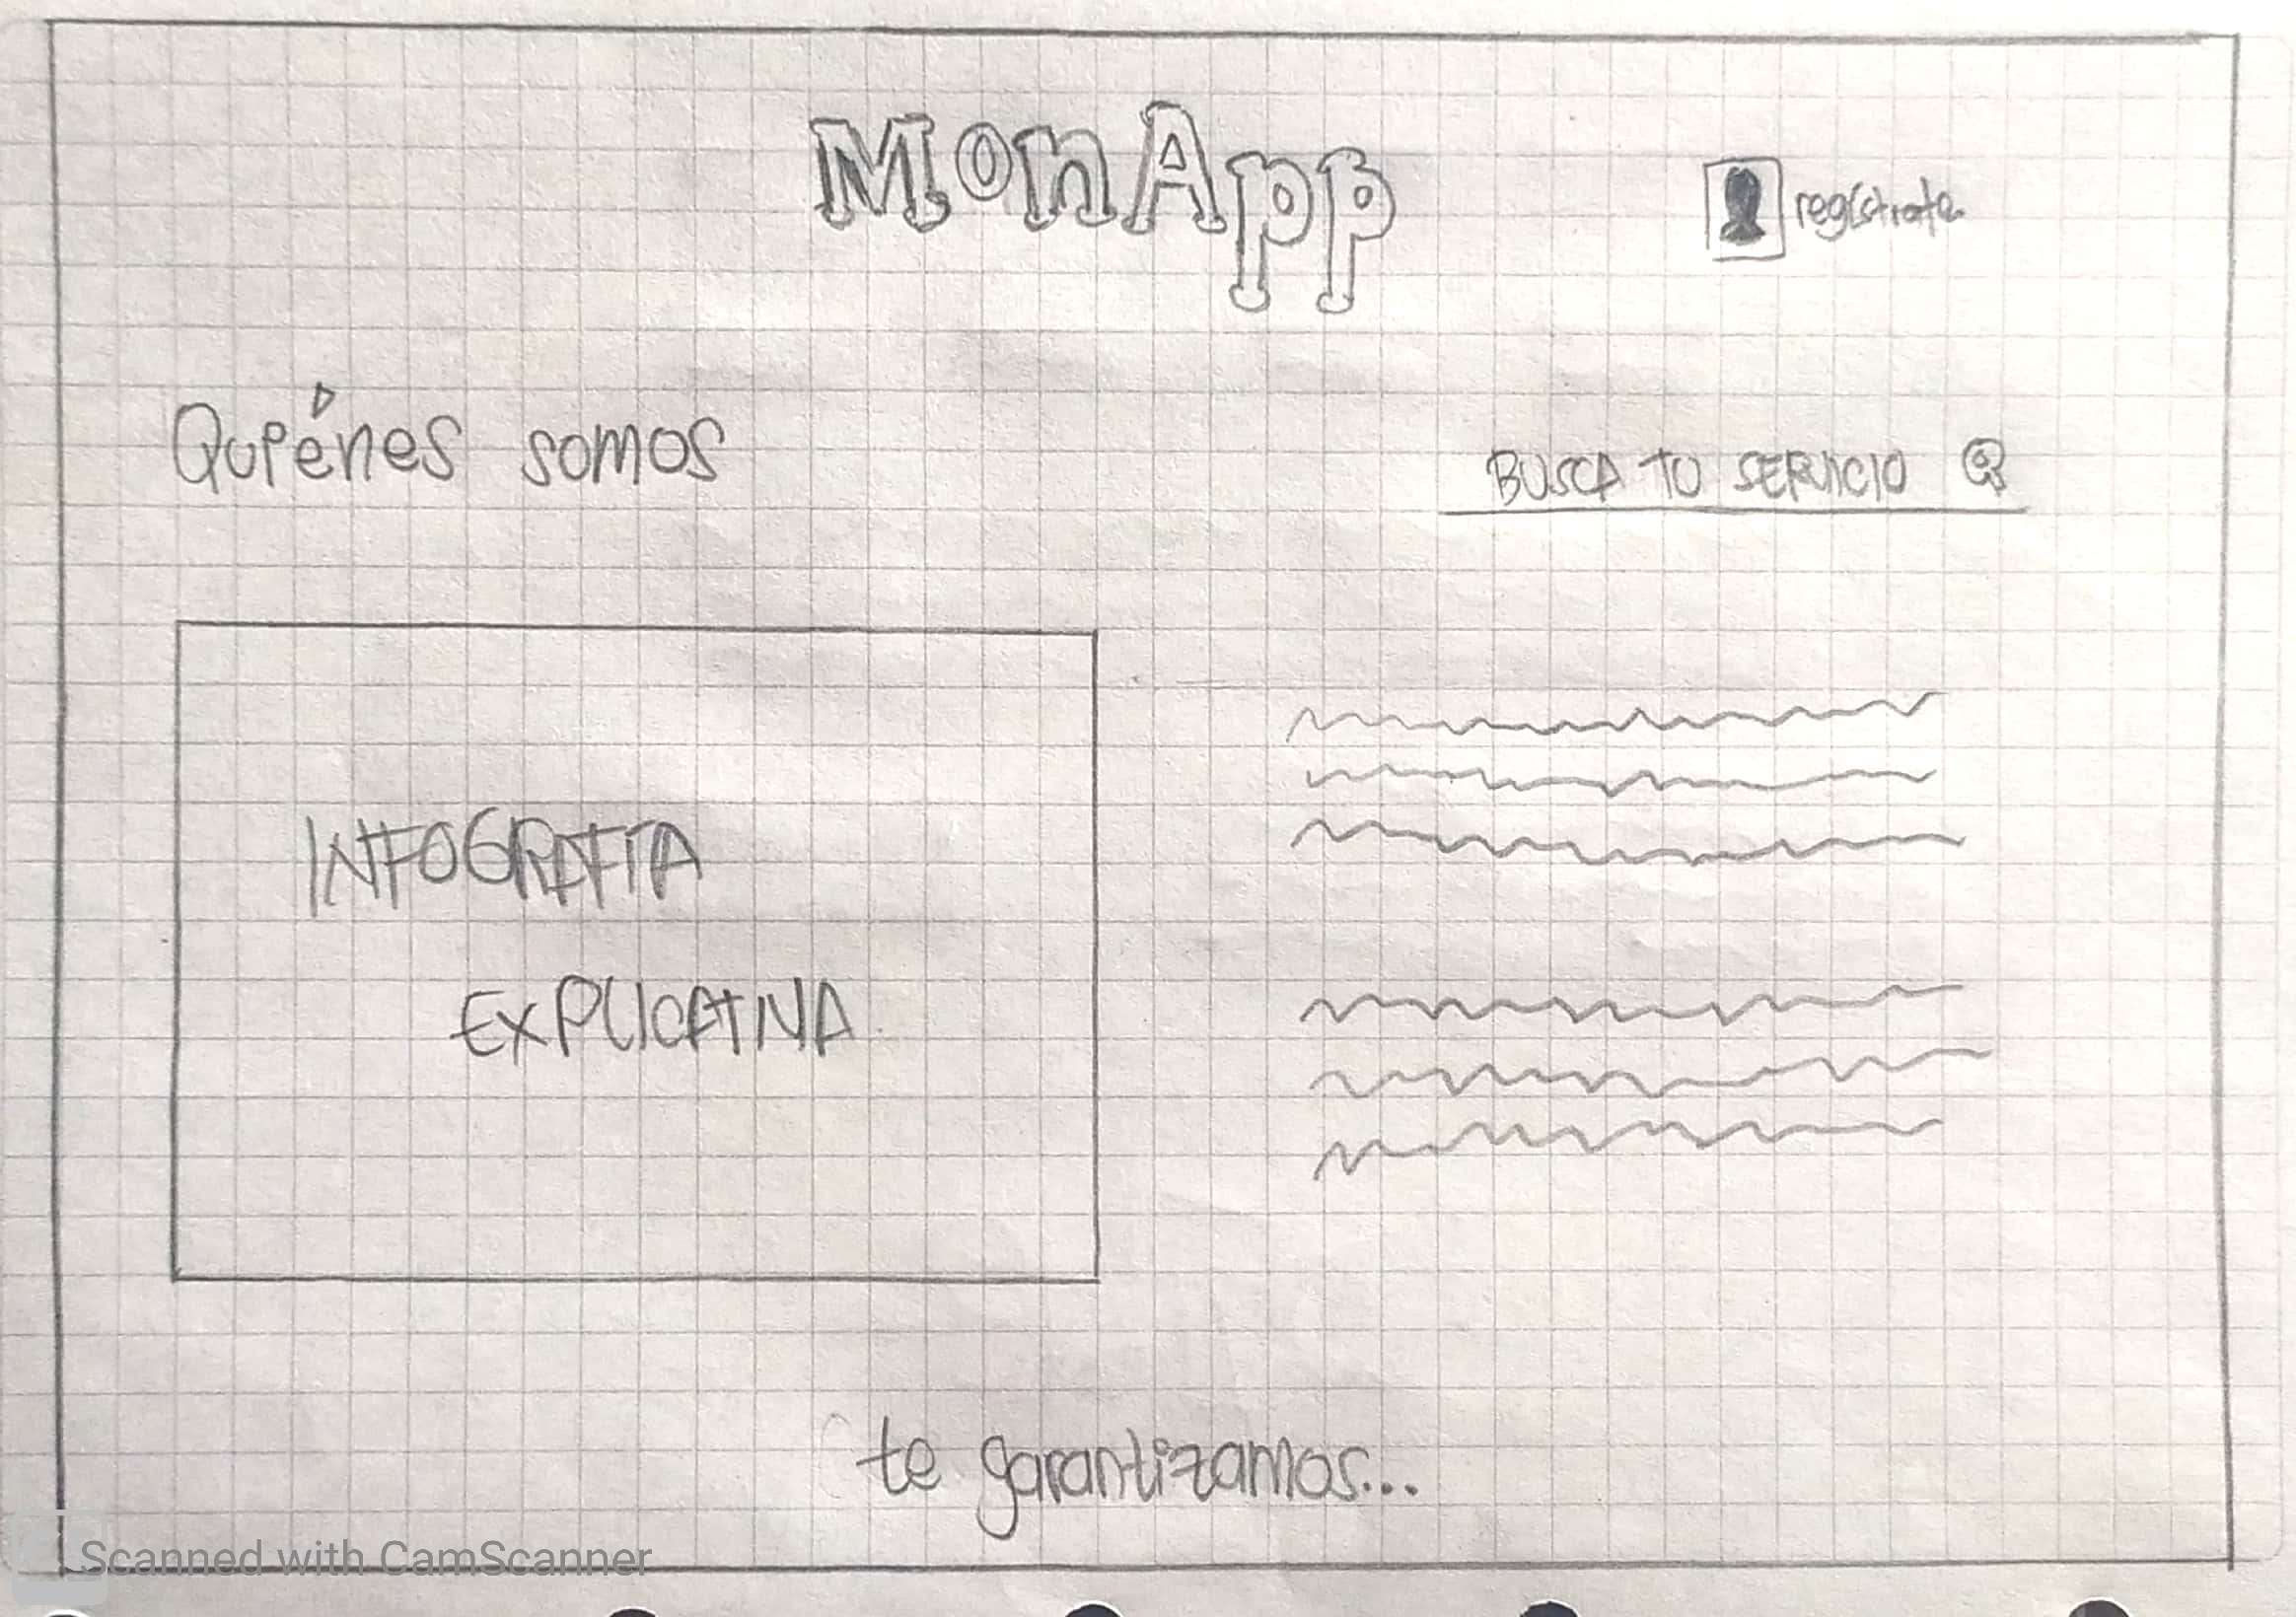 MonApp
regístrate
Quiénes somos
BUSCA TU SERVICIO
INFOGRAFIA
EXPLICATIVA
te garantizamos...
Scanned with CamScanner